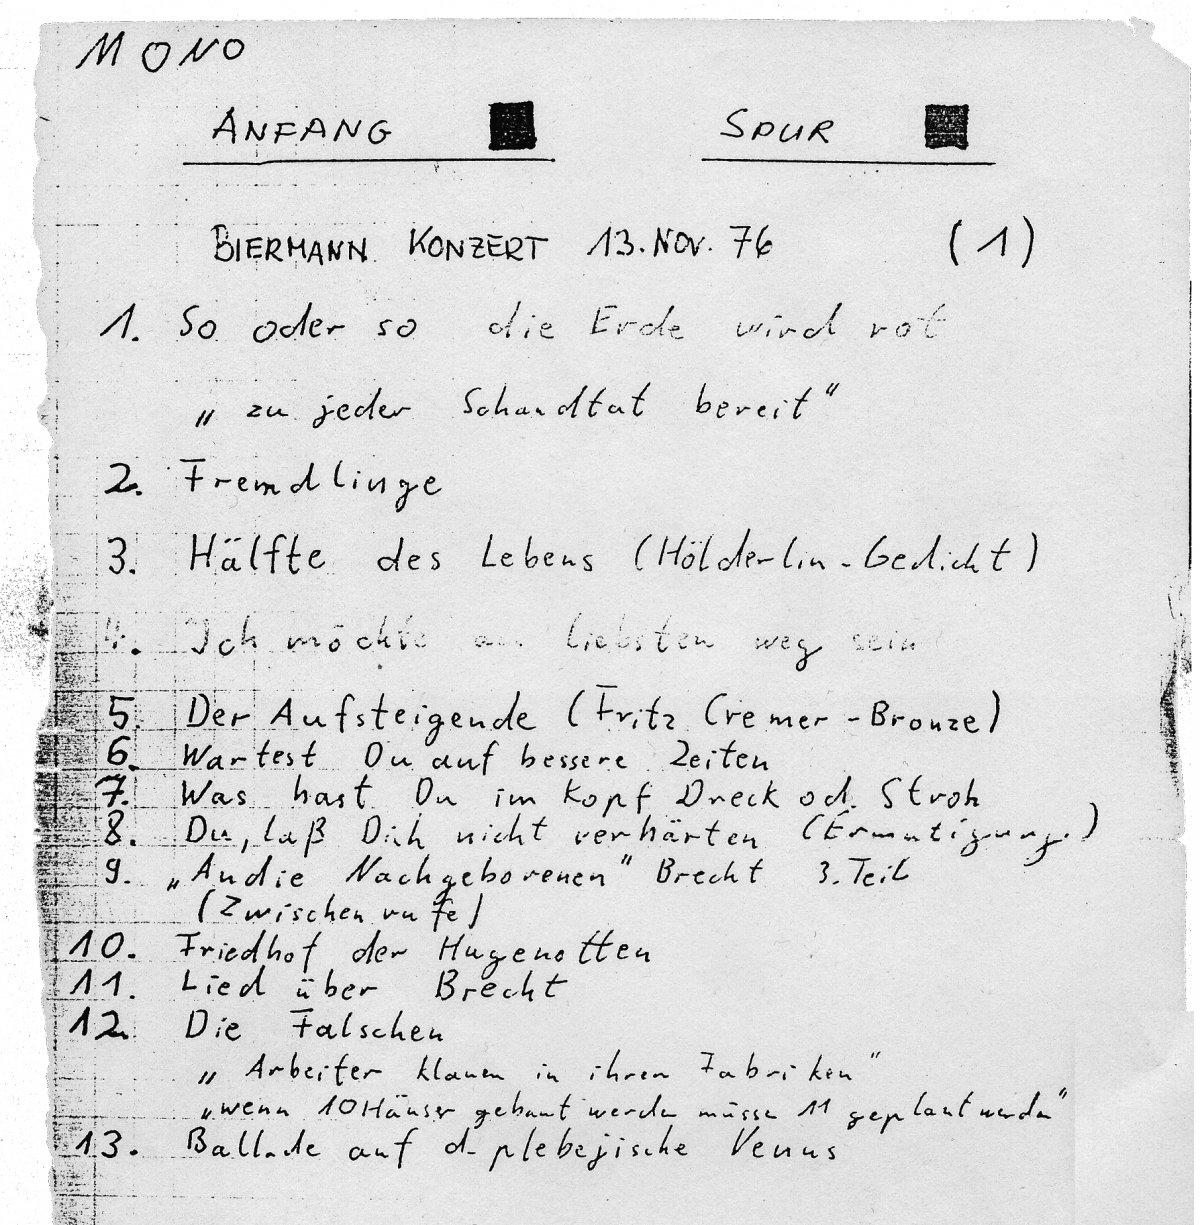 MONO
ANFANG SPUR
BIERMANN KONZERT 13. NOV. 76 (1)
1. So oder so die Erde wird rot
„ zu jeder Schandtat bereit“
2. Fremdlinge
3. Hälfte des Lebens (Hölderlin-Gedicht)
4. Ich möchte am liebsten weg sein
5. Der Aufsteigende (Fritz Cremer-Bronze)
6. Wartest Du auf bessere Zeiten
7. Was hast Du im Kopf Dreck od. Stroh
8. Du, laß Dich nicht verhärten (Ermutigung)
9. „An die Nachgeborenen“ Brecht 3. Teil
(Zwischenrufe)
10. Friedhof der Hugenotten
11. Lied über Brecht
12. Die Falschen
„ Arbeiter klauen in ihren Fabriken“
„wenn 10 Häuser gebaut werden müssen 11 geplant werden“
13. Ballade auf d. plebejische Venus